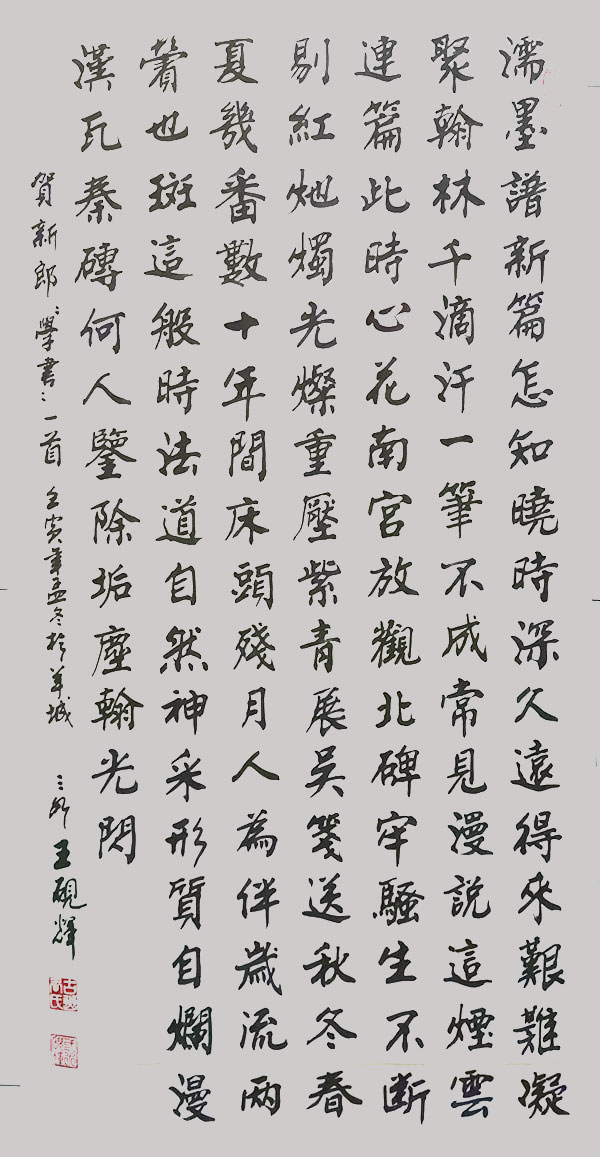 濡墨譜新篇怎知曉時深久遠得來艱難凝
聚翰林千滴汗一筆不成常見漫說這煙雲
連篇此時心花南宮放觀北碑牢騷生不斷
剔紅灺燭光燦重壓紫青展吳箋送秋冬春
夏幾番數十年間床頭殘月人為伴歲流兩
鬢也斑這般時法道自然神采形質自爛漫
漢瓦秦磚何人鑒除垢塵翰光閃
賀新郎:學書:一首 壬寅年孟冬於羊城 王硯輝